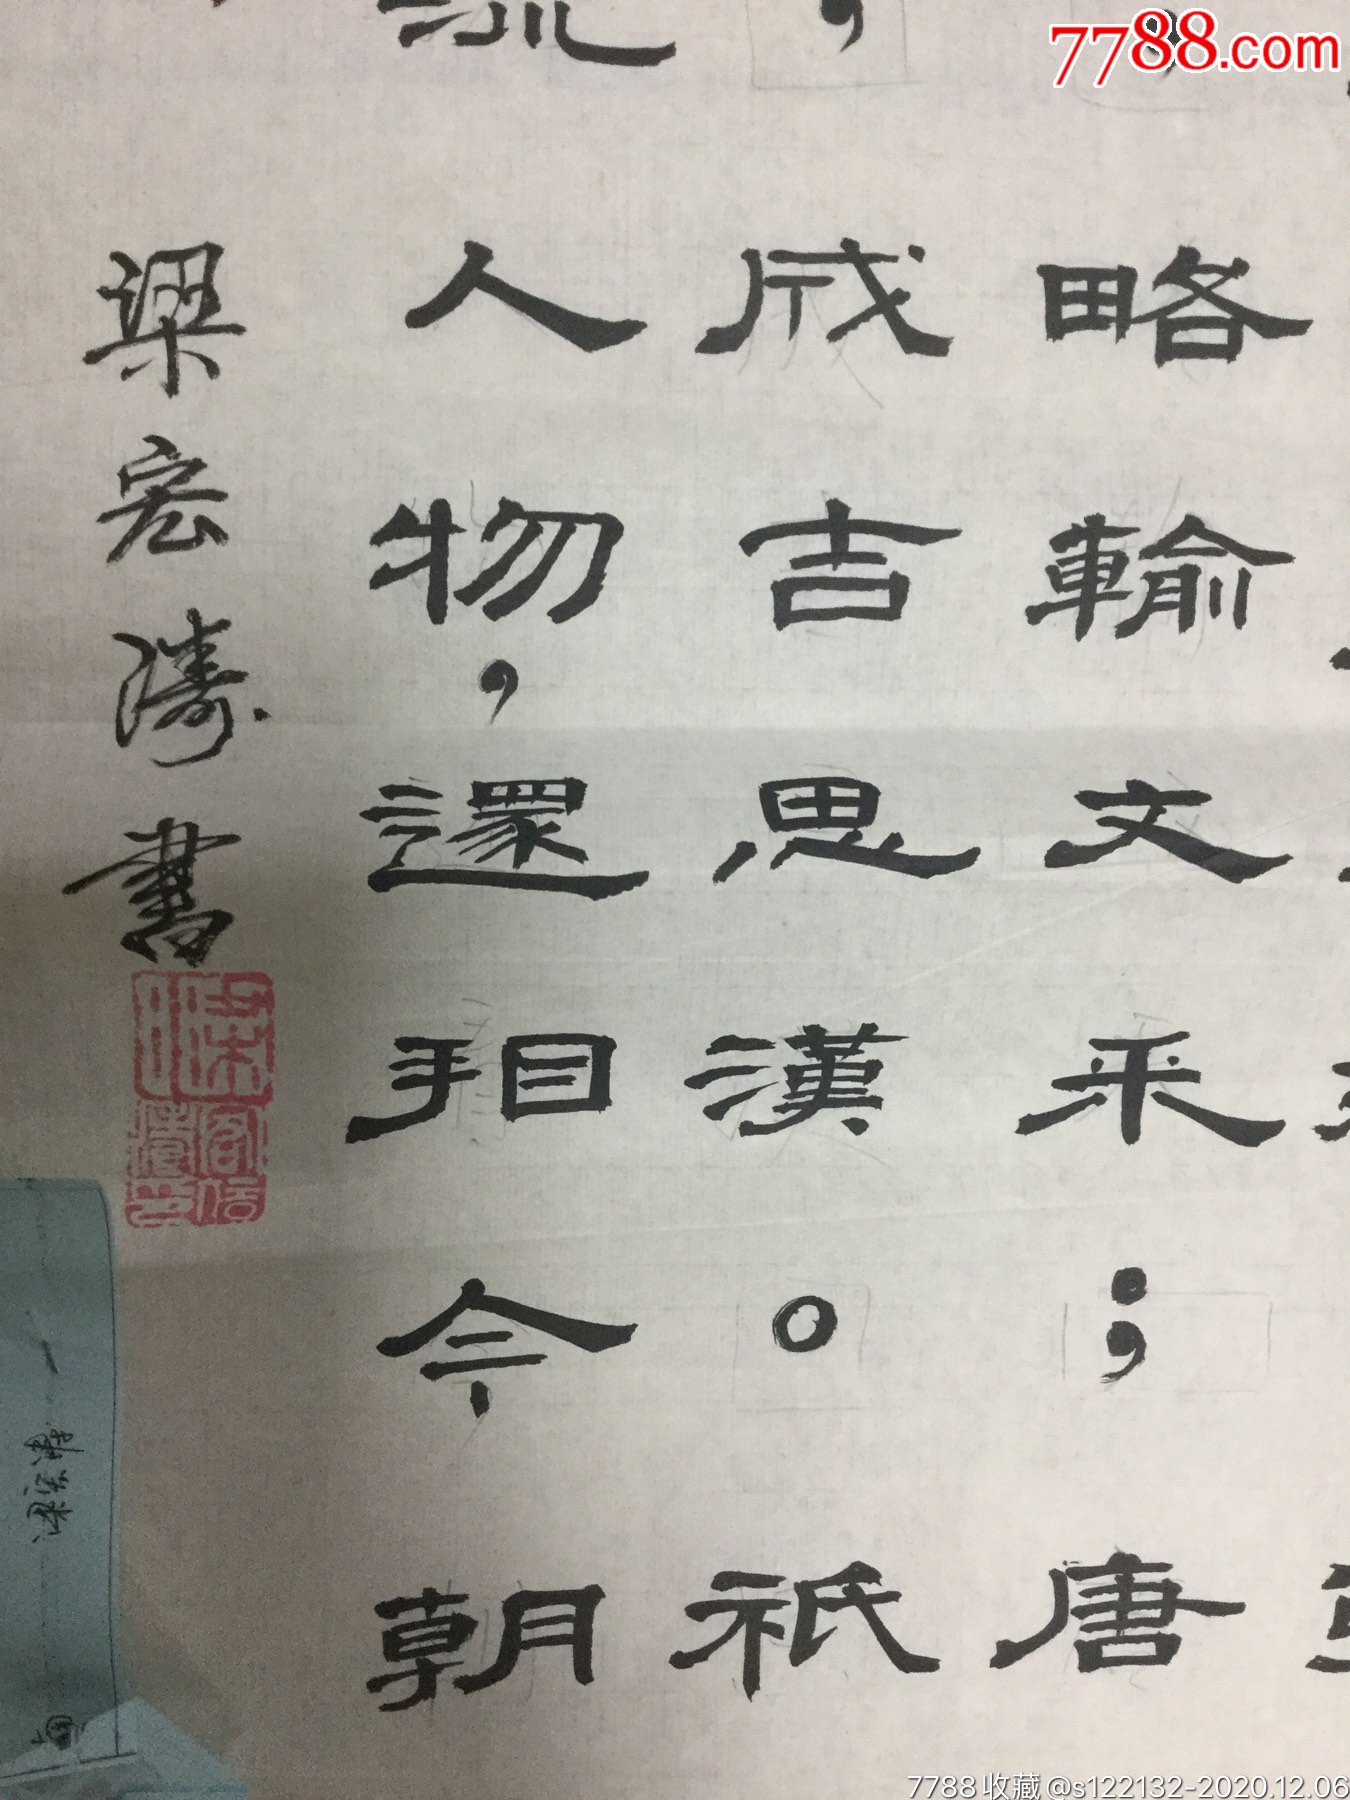 7788.com
略輸文采；唐
，成吉思漢。祇
流人物，還看今朝
梁宏濤書
梁宏濤
7788收藏@s122132-2020.12.06